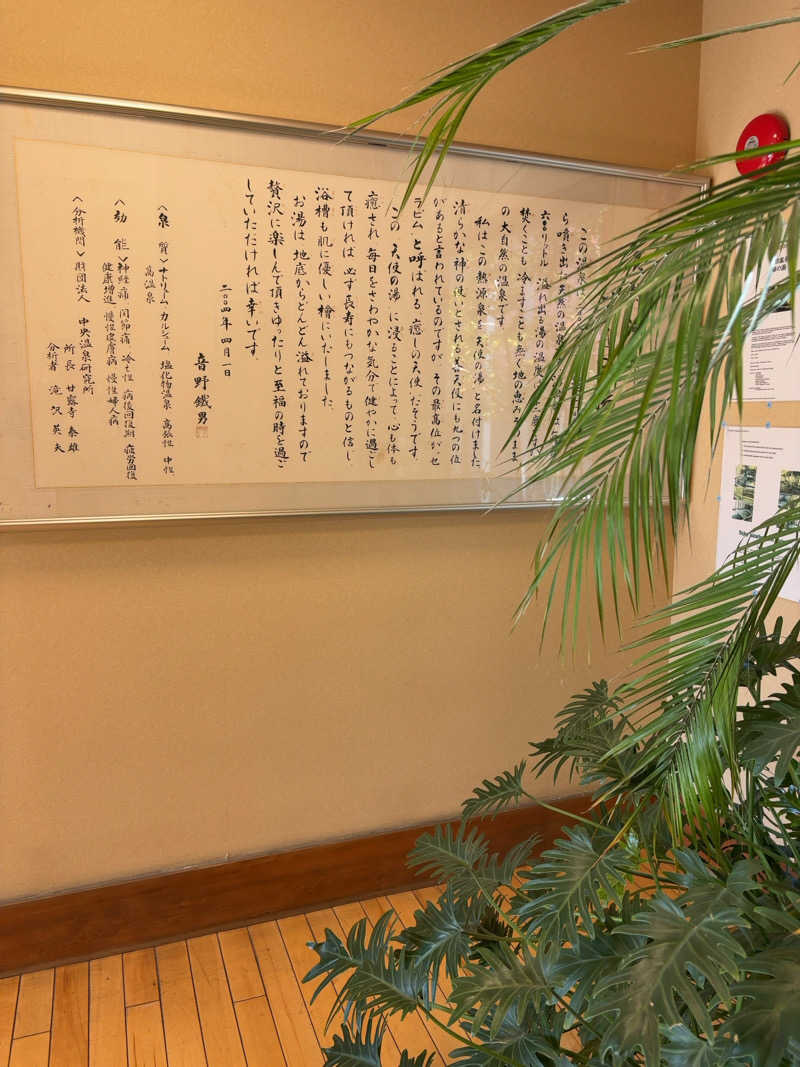 この温泉は
ら噴き出す天然の温泉
六〇リットル 溢れ出る湯の温度は
焚くことも 冷ますことも無く地の恵みそのまま
の大自然の温泉です
私は この熱源泉を 天使の湯 と名付けました
清らかな神の使いとされる善天使にも九つの位
があると言われているのですが その最高位が、セ
ラビムと呼ばれる 癒しの天使 だそうです。
この 天使の湯 に浸ることによって、心も体も
癒され 毎日をさわやかな気分で健やかに過ごし
て頂ければ 必ず長寿にもつながるものと信じ、
浴槽も肌に優しい檜にいたしました
お湯は 地底からどんどん溢れておりますので
贅沢に楽しんで頂きゆったりと至福の時を過ご
していただければ幸いです。
二〇〇四年 四月一日
音野鐵男
〈泉質〉ナトリーム カルシューム 塩化物温泉 高張性 中性、
高温泉
〈効能〉神経痛 関節痛 冷え性 病後回復期 疲労回復
健康増進 慢性皮膚病 慢性婦人病
〈分析機関〉財団法人 中央温泉研究所
所長 甘露寺 泰雄
分析者 滝沢 英夫